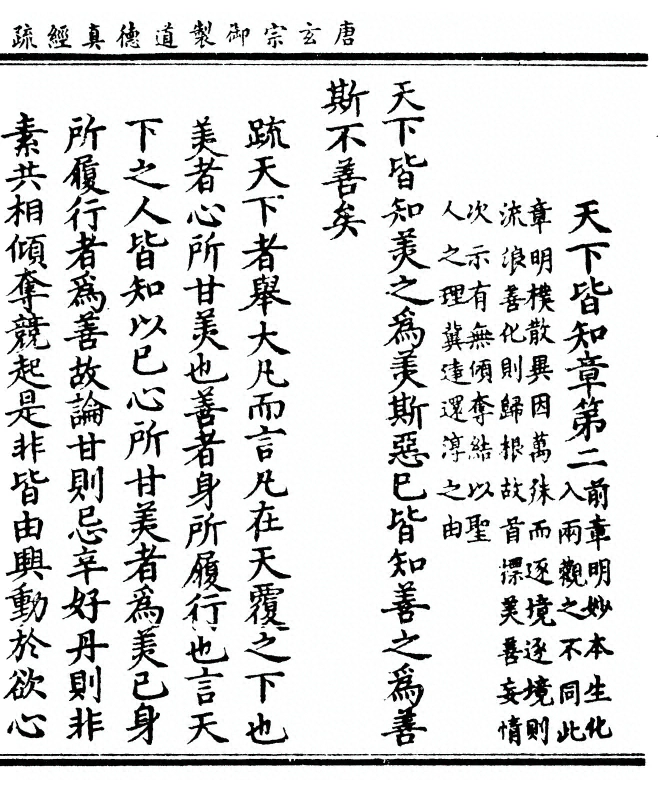 唐玄宗御製道德真經疏
天下皆知章第二
前章明妙本生化
入兩觀之不同此
章明樸散異因萬殊而逐境逐境則
流浪善化則歸根故首摽美善妄情
次示有無傾奪結以聖
人之理冀達還淳之由
天下皆知美之爲美斯惡已皆知善之爲善
斯不善矣
疏天下者舉大凡而言凡在天覆之下也
美者心所甘美也善者身所履行也言天
下之人皆知以己心所甘美者爲美己身
所履行者爲善故論甘則忌辛好丹則非
素共相傾奪競起是非皆由興動於欲心